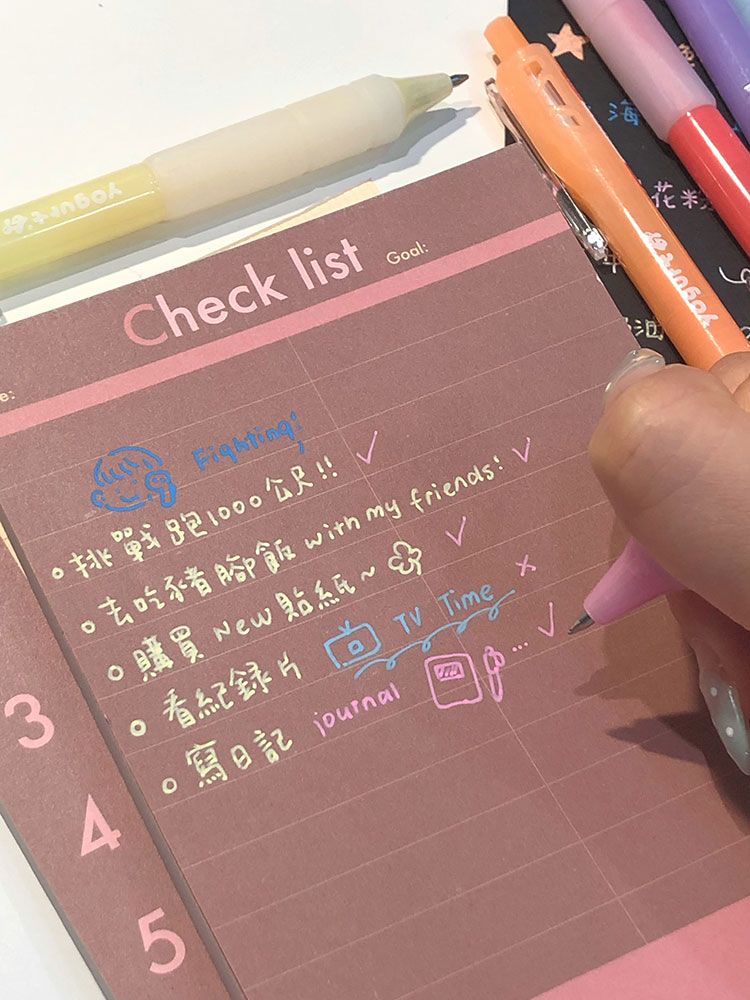 yogurt
海
花粉
yogurt
油
Check list
Goal:
e:
Fighting!
挑戰跑1000公尺!!
去吃豬腳飯 with my friends!
購買 New 貼紙~
看紀錄片 TV Time
寫日記 journal ...
3
4
5